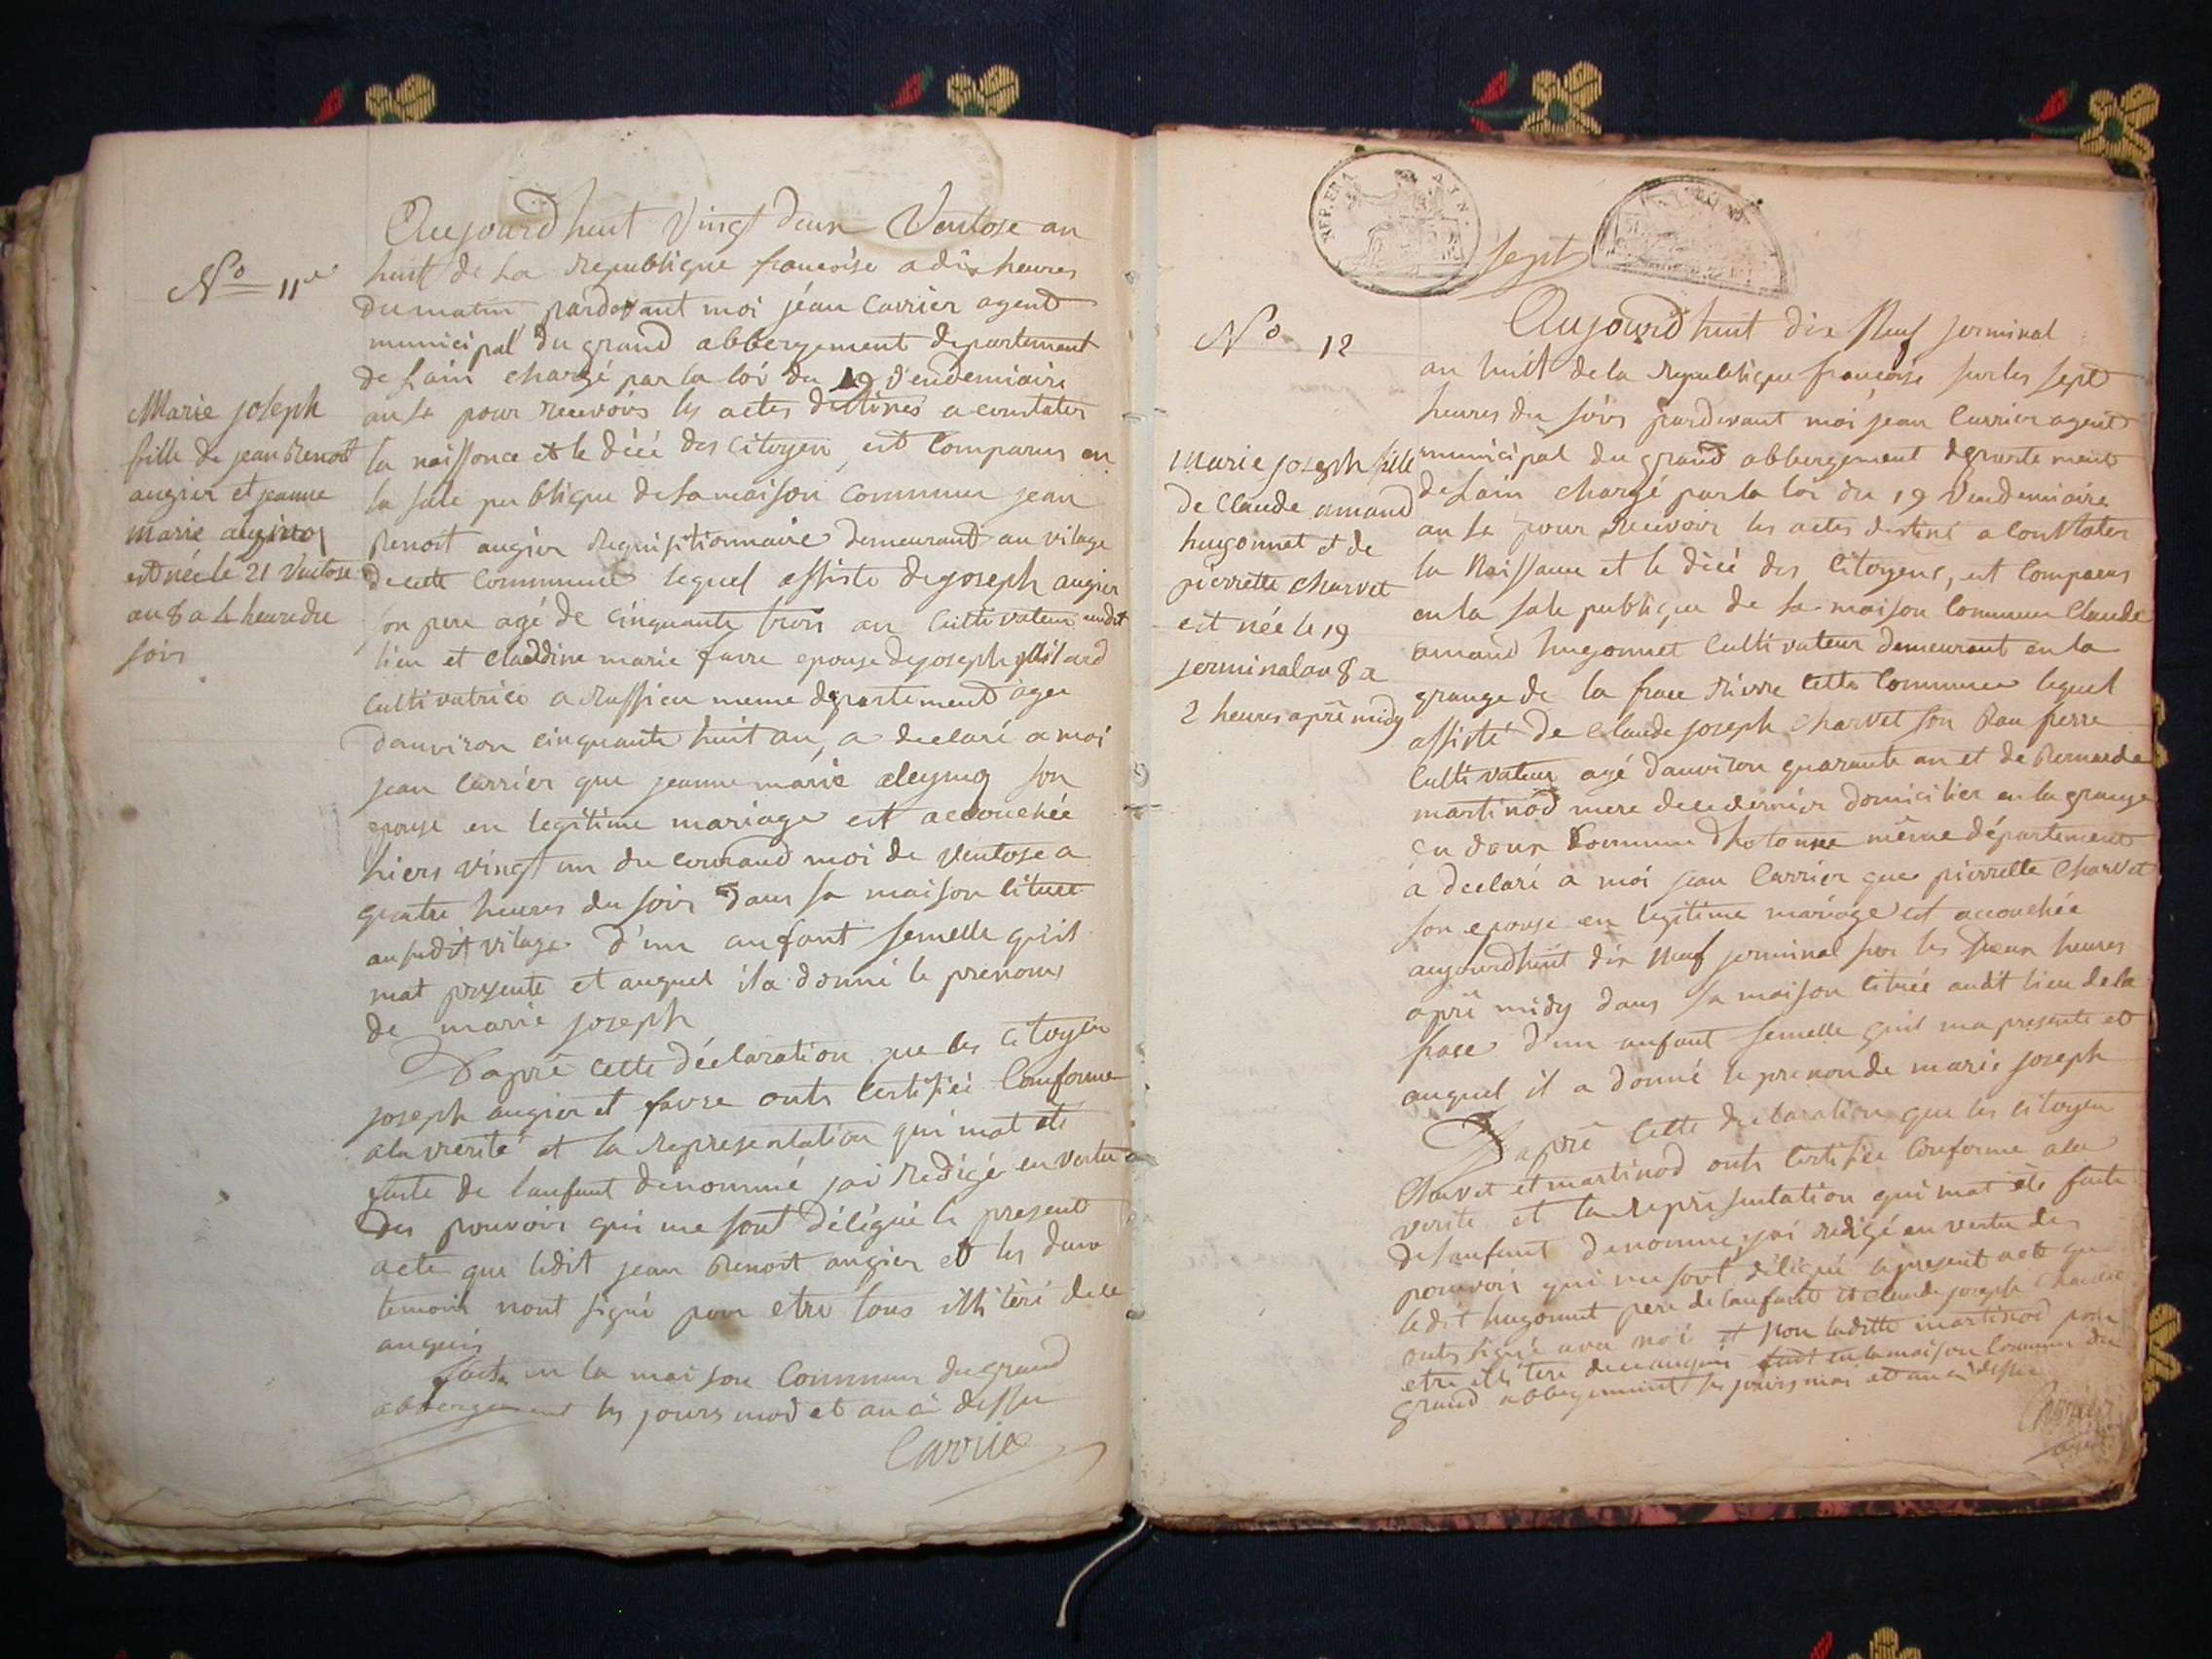 N° 11e
Marie joseph
fille de jean Benoit
augier et jeanne
marie
est née le 21 Ventose
an 8 a 4 heure du
soir
Aujourdhuit Vingt deux Ventose an
huit de La Republique françoise a dix heures
du matin pardevant moi jéan Carrier agent
municipal du grand abbergement departement
de Lain chargé par la loi du 19 Vendemiaire
an 4 pour recevoirs les actes destinés a constater
la naissance et le décé des Citoyen, est Comparus en
la sale publique de la maison Commune jean
Benoit augier Requisitionnaire demeurant au vilage
de cette Commune lequel assisté de joseph augier
son pere agé de Cinquante trois an Cultivateur audit
lieu et Claudine marie favre epouse de joseph
Cultivatrice a Ruffieu meme departement agee
danviron cinquante huit an, a declaré a moi
jean Carrier que jeanne marie son
epouse en legitime mariage est accouchée
hiers vingt un du courand moi de Ventose a
quatre heures du soir dans sa maison cituee
au sudit vilage d'un anfant femelle qu'il
mat presenté et auquel il a donné le prenoms
de marie joseph
Daprê cette déclaration que les Citoyen
joseph augier et favre onts Certifiéé Conforme
a la verité et la representation qui mat eté
faite de lanfant dénommé jai redigé en vertu
des pouvoir qui me sont délégué le present
acte que ledit jean Benoit augier et les deux
temoin nont signé pour etre tous illitéré de ce
anquis
fait en la maison Commune du grand
abbergement les jours moi et an ci dessu
Carrier
sept
N° 12
Marie joseph fille
de Claude amand
hugonnet et de
pierrette Charvet
est née le 19
jerminal an 8 a
2 heures aprê midy
Aujourdhuit dix Neuf jerminal
an huit de la Republique françoise sur les sept
heures du soir pardevant moi jean Carrier agent
municipal du grand abbergement departement
de Lain chargé par la loi du 19 Vendemiaire
an 4 pour recevoir les actes destiné a constater
la Naissance et le décé des Citoyens, est Comparus
en la sale publique de la maison Commune Claude
amand hugonnet Cultivateur demeurant en la
grange de la frace Rierre Cette Commune lequel
assisté de Claude joseph Charvet son Bau perre
Cultivateur agé danviron quarante an et de Bernarde
martinod mere de ce dernier domicilier en la grange
en doux Commune dhotonne même département
à declaré à moi jean Carrier que pierrette Charvet
son epouse en legitime mariage est accouchée
aujourdhuit dix Neuf jerminal sur les Deux heures
aprê midy dans sa maison cituée audit lieu de la
frace d'un anfant femelle quil ma presenté et
auquel il a donné le prenon de marie joseph
Daprê cette declaration que les citoyen
Charvet et martinod onts Certifiée Conforme a la
verite et la representation qui mat été faite
de lanfant dénommé jai redigé en vertu des
pouvoirs qui me sont délégué le present acte que
ledit hugonnet pere de lanfant et Claude joseph Charvet
onts signé avec moi et Non laditte martinod pour
etre illitéré de ce anquis fait en la maison Commune du
grand abbergement les jours moi et an ci dessu
Carrier